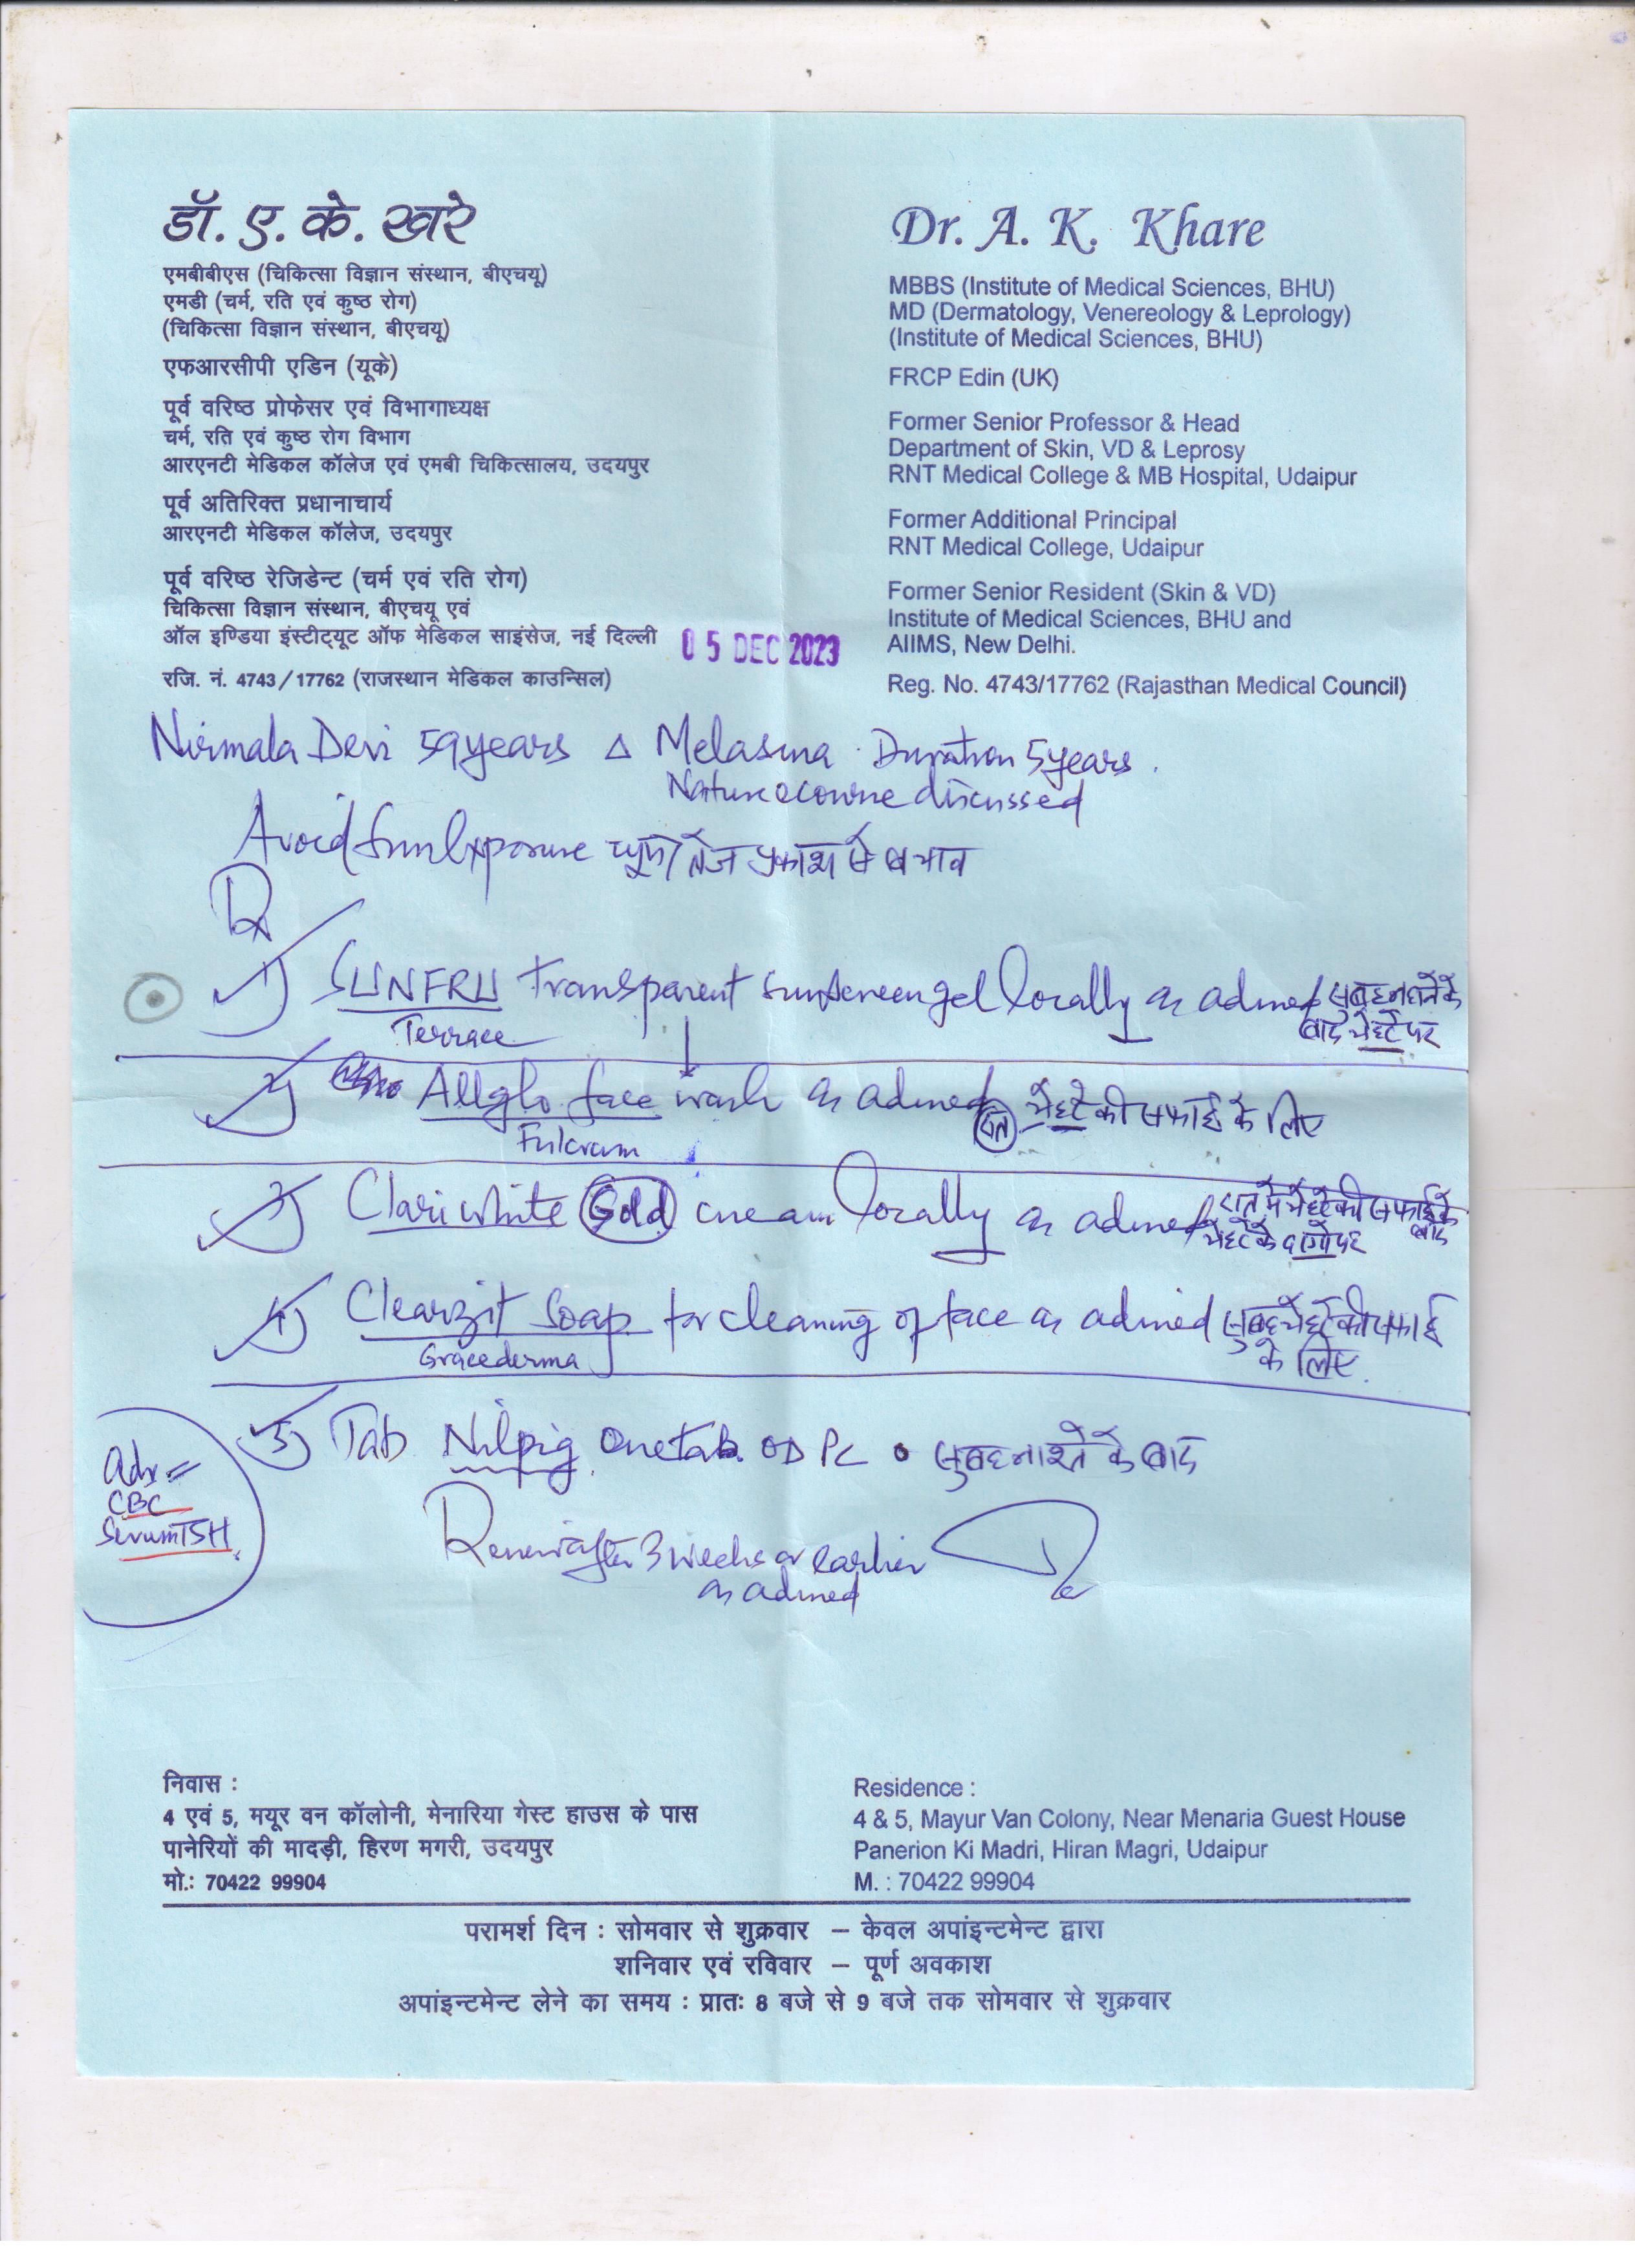 डॉ. ए. के. खरे
एमबीबीएस (चिकित्सा विज्ञान संस्थान, बीएचयू)
एमडी (चर्म, रति एवं कुष्ठ रोग)
(चिकित्सा विज्ञान संस्थान, बीएचयू)
एफआरसीपी एडिन (यूके)
पूर्व वरिष्ठ प्रोफेसर एवं विभागाध्यक्ष
चर्म, रति एवं कुष्ठ रोग विभाग
आरएनटी मेडिकल कॉलेज एवं एमबी चिकित्सालय, उदयपुर
पूर्व अतिरिक्त प्रधानाचार्य
आरएनटी मेडिकल कॉलेज, उदयपुर
पूर्व वरिष्ठ रेजिडेन्ट (चर्म एवं रति रोग)
चिकित्सा विज्ञान संस्थान, बीएचयू एवं
ऑल इण्डिया इंस्टीट्यूट ऑफ मेडिकल साइंसेज, नई दिल्ली
रजि. नं. 4743/17762 (राजस्थान मेडिकल काउन्सिल)
Dr. A. K. Khare
MBBS (Institute of Medical Sciences, BHU)
MD (Dermatology, Venereology & Leprology)
(Institute of Medical Sciences, BHU)
FRCP Edin (UK)
Former Senior Professor & Head
Department of Skin, VD & Leprosy
RNT Medical College & MB Hospital, Udaipur
Former Additional Principal
RNT Medical College, Udaipur
Former Senior Resident (Skin & VD)
Institute of Medical Sciences, BHU and
AIIMS, New Delhi.
Reg. No. 4743/17762 (Rajasthan Medical Council)
05 DEC 2023
Nirmala Devi 59years Δ Melasma Duration 5years.
Nature & course discussed
Avoid Sun Exposure धूप/तेज प्रकाश से बचाव
Rx
1) SUNFRU transparent sunscreen gel locally as advised सुबह नहाने के
Terrace बाद चेहरे पर
2) Allglo face wash as advised रात चेहरे की सफाई के लिए
Fulcram
3) Clariwhite Gold cream locally as advised रात में चेहरे की सफाई के बाद
चेहरे के दागो पर
4) Clearzit Soap for cleaning of face as advised सुबह चेहरे की सफाई
Gracederma के लिए.
5) Tab Nilpig one tab. OD PC सुबह नाश्ते के बाद
Adv=
CBC
Serum TSH.
Review after 3 weeks or earlier
as advised
निवास :
4 एवं 5, मयूर वन कॉलोनी, मेनारिया गेस्ट हाउस के पास
पानेरियों की मादड़ी, हिरण मगरी, उदयपुर
मो.: 70422 99904
Residence :
4 & 5, Mayur Van Colony, Near Menaria Guest House
Panerion Ki Madri, Hiran Magri, Udaipur
M. : 70422 99904
परामर्श दिन : सोमवार से शुक्रवार – केवल अपांइन्टमेन्ट द्वारा
शनिवार एवं रविवार – पूर्ण अवकाश
अपांइन्टमेन्ट लेने का समय : प्रातः 8 बजे से 9 बजे तक सोमवार से शुक्रवार